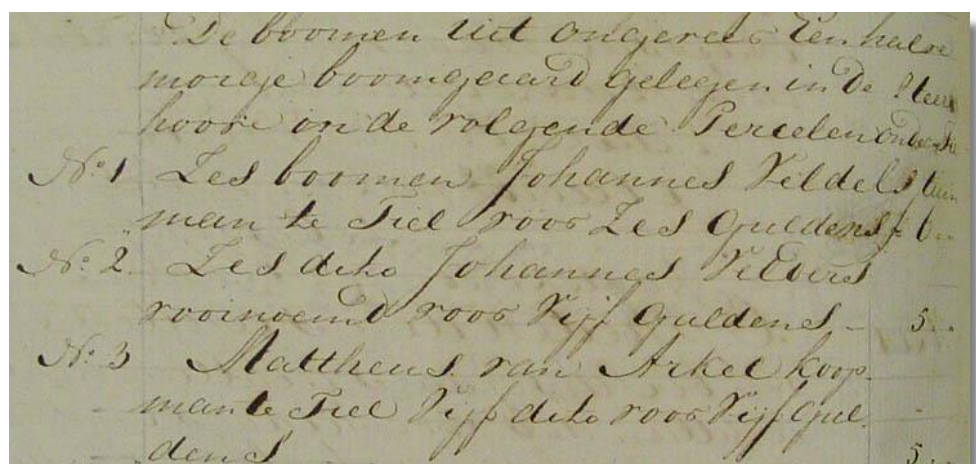 De boomen uit ongeveer Een halve
morge boomgaard gelegen in de
hoove in de volgende Perceelen
No 1 Zes boomen Johannes tuin
man te Tiel voor Zes Guldens f 6 ..
No 2 Zes dito Johannes
voornoemd voor Vijf Guldens - 5 ..
No 3 Mattheus van Arkel koop
man te Tiel Vijf dito voor Vijf Gul
dens 5 ..